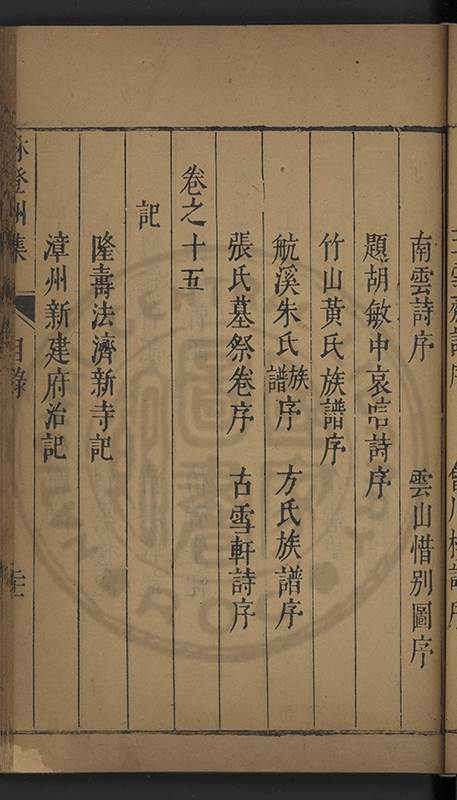 南雲詩序　雲山惜別圖序
題胡敏中哀唁詩序
竹山黃氏族譜序
航溪朱氏族譜序　方氏族譜序
張氏墓祭卷序　古雪軒詩序
卷之十五
記
隆壽法濟新寺記
漳州新建府治記
登州集　目錄